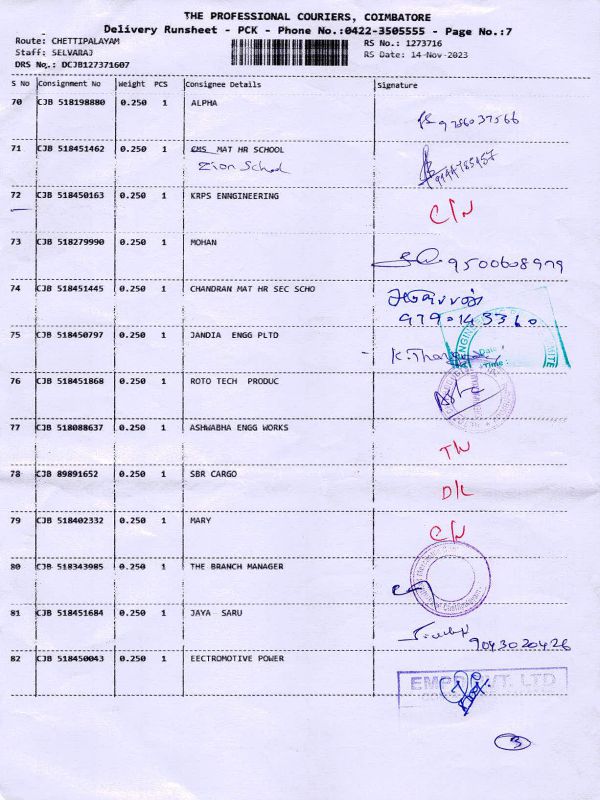 THE PROFESSIONAL COURIERS, COIMBATORE
Delivery Runsheet - PCK - Phone No.:0422-3505555 - Page No.:7
Route: CHETTIPALAYAM RS No.: 1273716
Staff: SELVARAJ RS Date: 14-Nov-2023
DRS No.: DCJB127371607
S No Consignment No Weight PCS Consignee Details Signature
70 CJB 518198880 0.250 1 ALPHA
9756037566
71 CJB 518451462 0.250 1 CMS MAT HR SCHOOL
Zion School
72 CJB 518450163 0.250 1 KRPS ENNGINEERING
C/N
73 CJB 518279990 0.250 1 MOHAN
9500608979
74 CJB 518451445 0.250 1 CHANDRAN MAT HR SEC SCHO
9790143360
75 CJB 518450797 0.250 1 JANDIA ENGG PLTD
Date:
Time:
76 CJB 518451868 0.250 1 ROTO TECH PRODUC
77 CJB 518088637 0.250 1 ASHWABHA ENGG WORKS
T/N
78 CJB 89891652 0.250 1 SBR CARGO
D/L
79 CJB 518402332 0.250 1 MARY
C/N
80 CJB 518343985 0.250 1 THE BRANCH MANAGER
81 CJB 518451684 0.250 1 JAYA SARU
9043020426
82 CJB 518450043 0.250 1 EECTROMOTIVE POWER
PVT. LTD
3